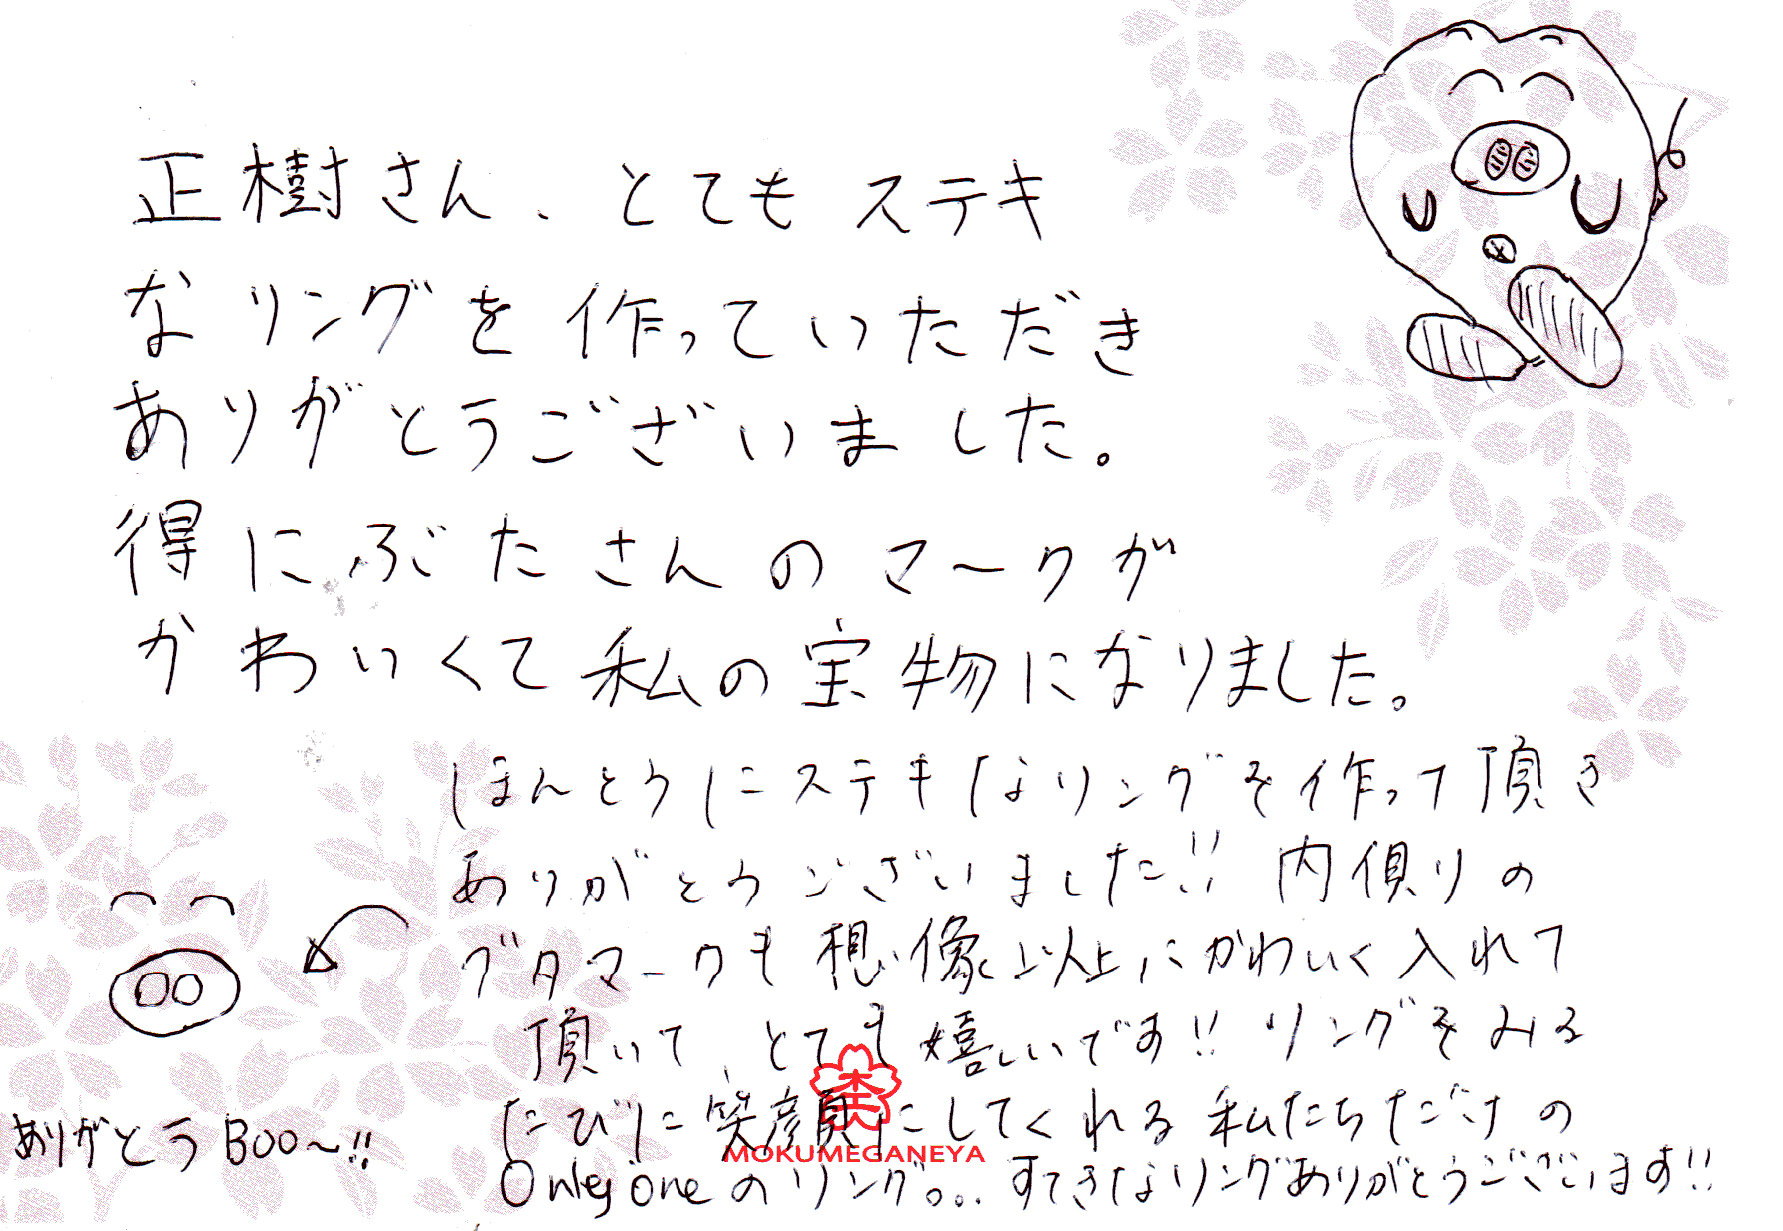 正樹さん、とてもステキ
なリングを作っていただき
ありがとうございました。
得にぶたさんのマークが
かわいくて私の宝物になりました。
ほんとうにステキなリングを作って頂き
ありがとうございました!! 内側りの
ブタマークも想像以上にかわいく入れて
頂いて、とても嬉しいです!! リングをみる
たびに笑顔にしてくれる私たちだけの
Only oneのリング。。。すてきなリングありがとうございます!!
ありがとうBoo〜!!
MOKUMEGANEYA